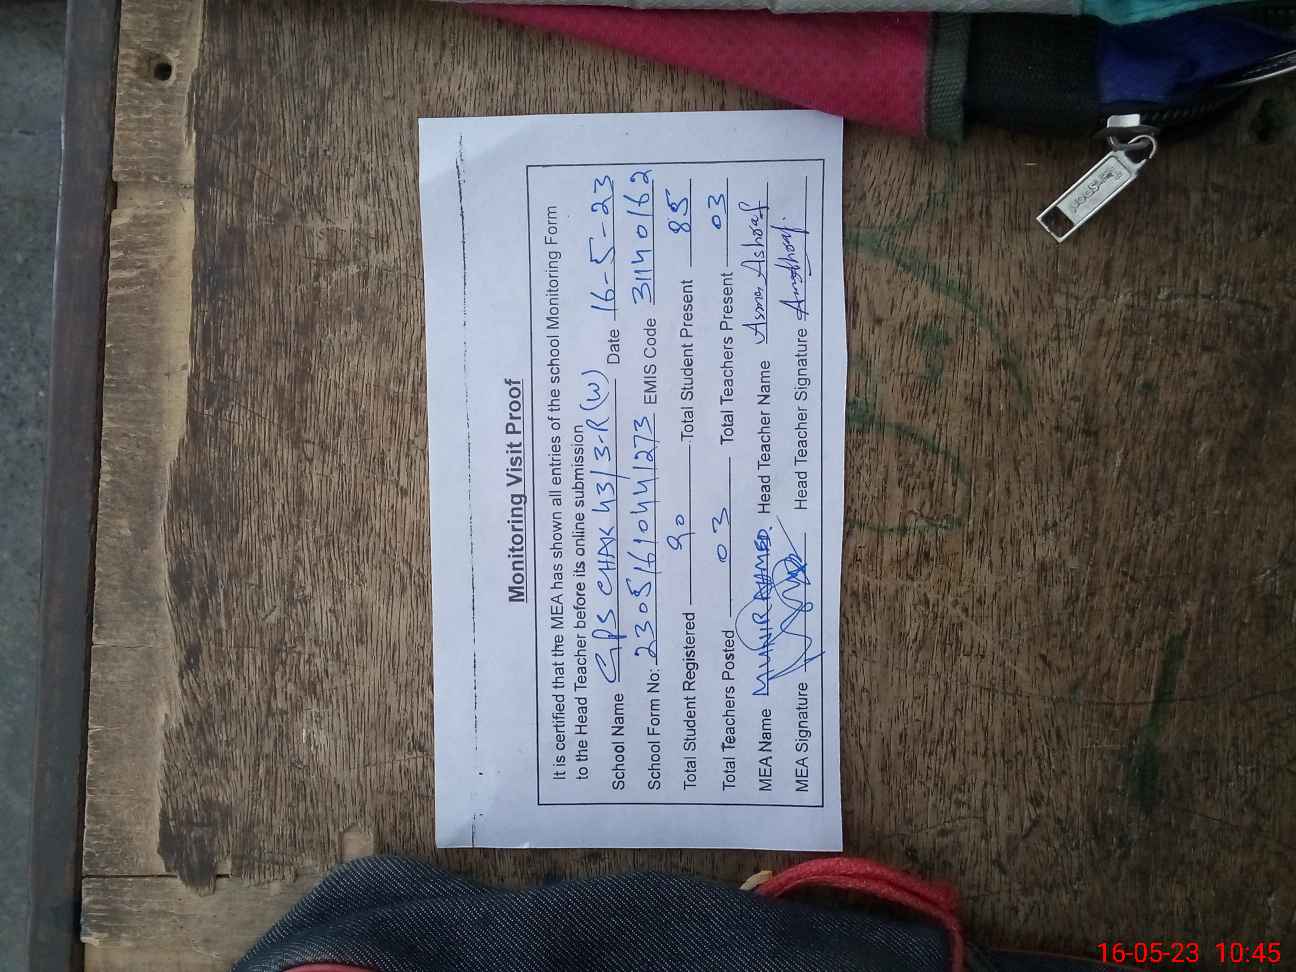 Monitoring Visit Proof
It is certified that the MEA has shown all entries of the school Monitoring Form
to the Head Teacher before its online submission
School Name GPS CHAK 43/3-R(W) Date 16-5-23
School Form No: 23051610441273 EMIS Code 31140162
Total Student Registered 90 Total Student Present 85
Total Teachers Posted 03 Total Teachers Present 03
MEA Name MUNIR AHMED. Head Teacher Name Asma Ashraf
MEA Signature Head Teacher Signature
16-05-23 10:45